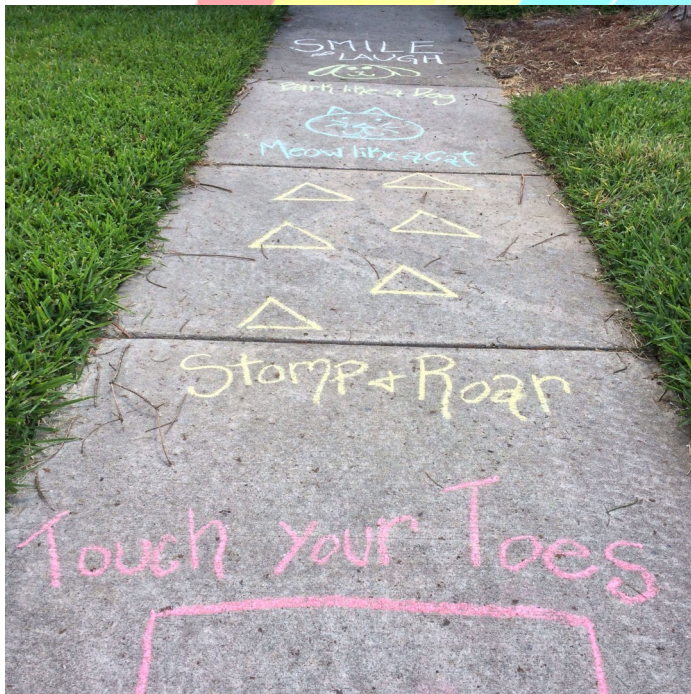 SMILE
& LAUGH
Bark like a Dog
Meow like a Cat
Stomp + Roar
Touch your Toes